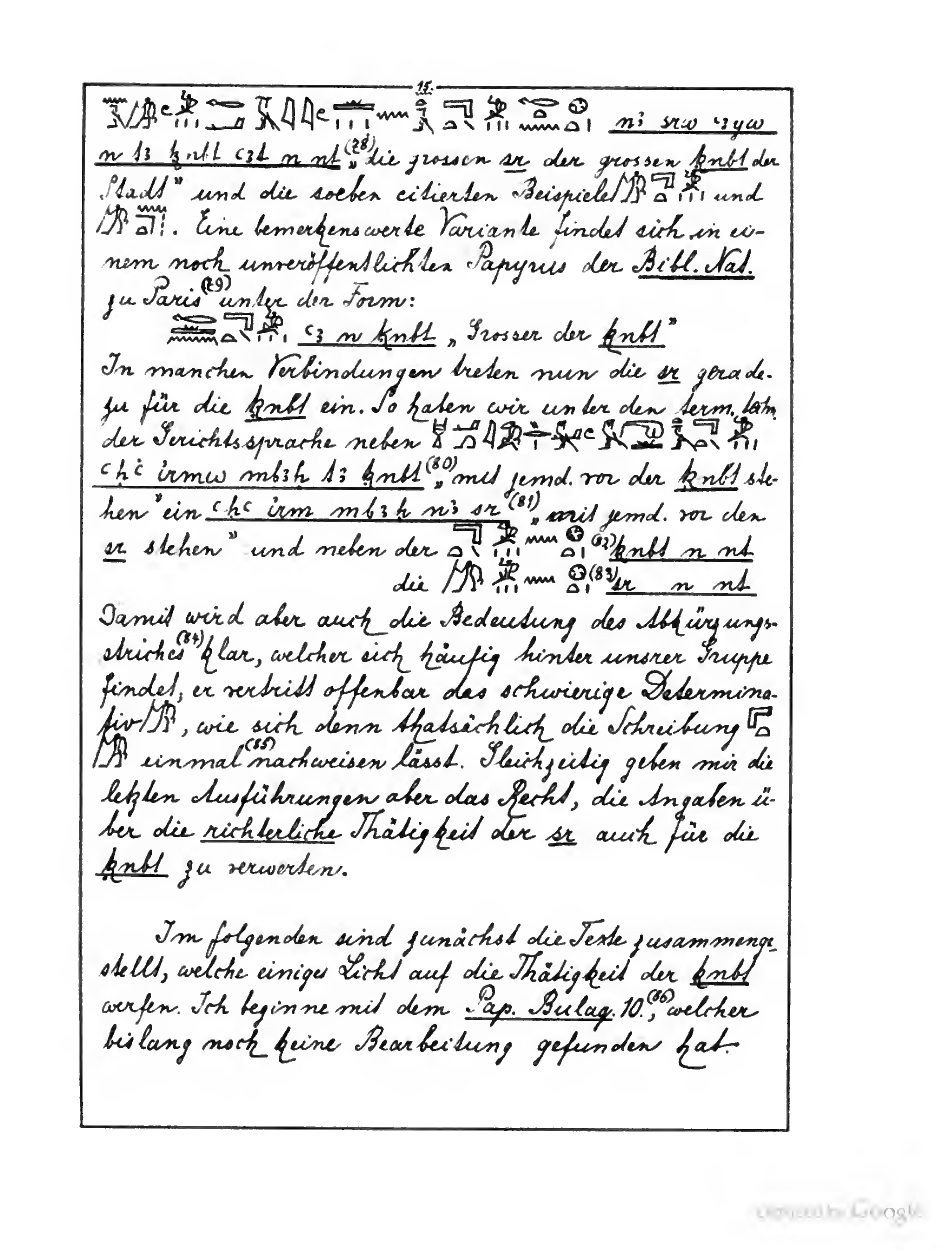 15.
n3 srw ꜥ3yw
n t3 ḳnbt ꜥ3t n nt (78) „die grossen sr der grossen ḳnbt der
Stadt" und die soeben citierten Beispiele und
. Eine bemerkenswerte Variante findet sich in ei-
nem noch unveröffentlichten Papyrus der Bibl. Nat.
zu Paris (79) unter der Form:
ꜥ3 n ḳnbt „Grosser der ḳnbt"
In manchen Verbindungen treten nun die sr gerade-
zu für die ḳnbt ein. So haben wir unter den term. tech.
der Gerichtssprache neben
ꜥḥꜥ irmw mb3ḥ t3 ḳnbt (80) „mit jemd. vor der ḳnbt ste-
hen" ein ꜥḥꜥ irm mb3ḥ n3 sr (81) „mit jemd. vor den
sr stehen" und neben der (82) ḳnbt n nt
die (83) sr n nt
Damit wird aber auch die Bedeutung des Abkürzungs-
striches (84) klar, welcher sich häufig hinter unsrer Gruppe
findet, er vertritt offenbar das schwierige Determina-
tiv, wie sich denn thatsächlich die Schreibung
einmal (85) nachweisen lässt. Gleichzeitig geben mir die
letzten Ausführungen aber das Recht, die Angaben ü-
ber die richterliche Thätigkeit der sr auch für die
ḳnbt zu verwerten.
Im folgenden sind zunächst die Texte zusammenge-
stellt, welche einiges Licht auf die Thätigkeit der ḳnbt
werfen. Ich beginne mit dem Pap. Bulaq. 10. (86), welcher
bislang noch keine Bearbeitung gefunden hat.
Digitized by Google